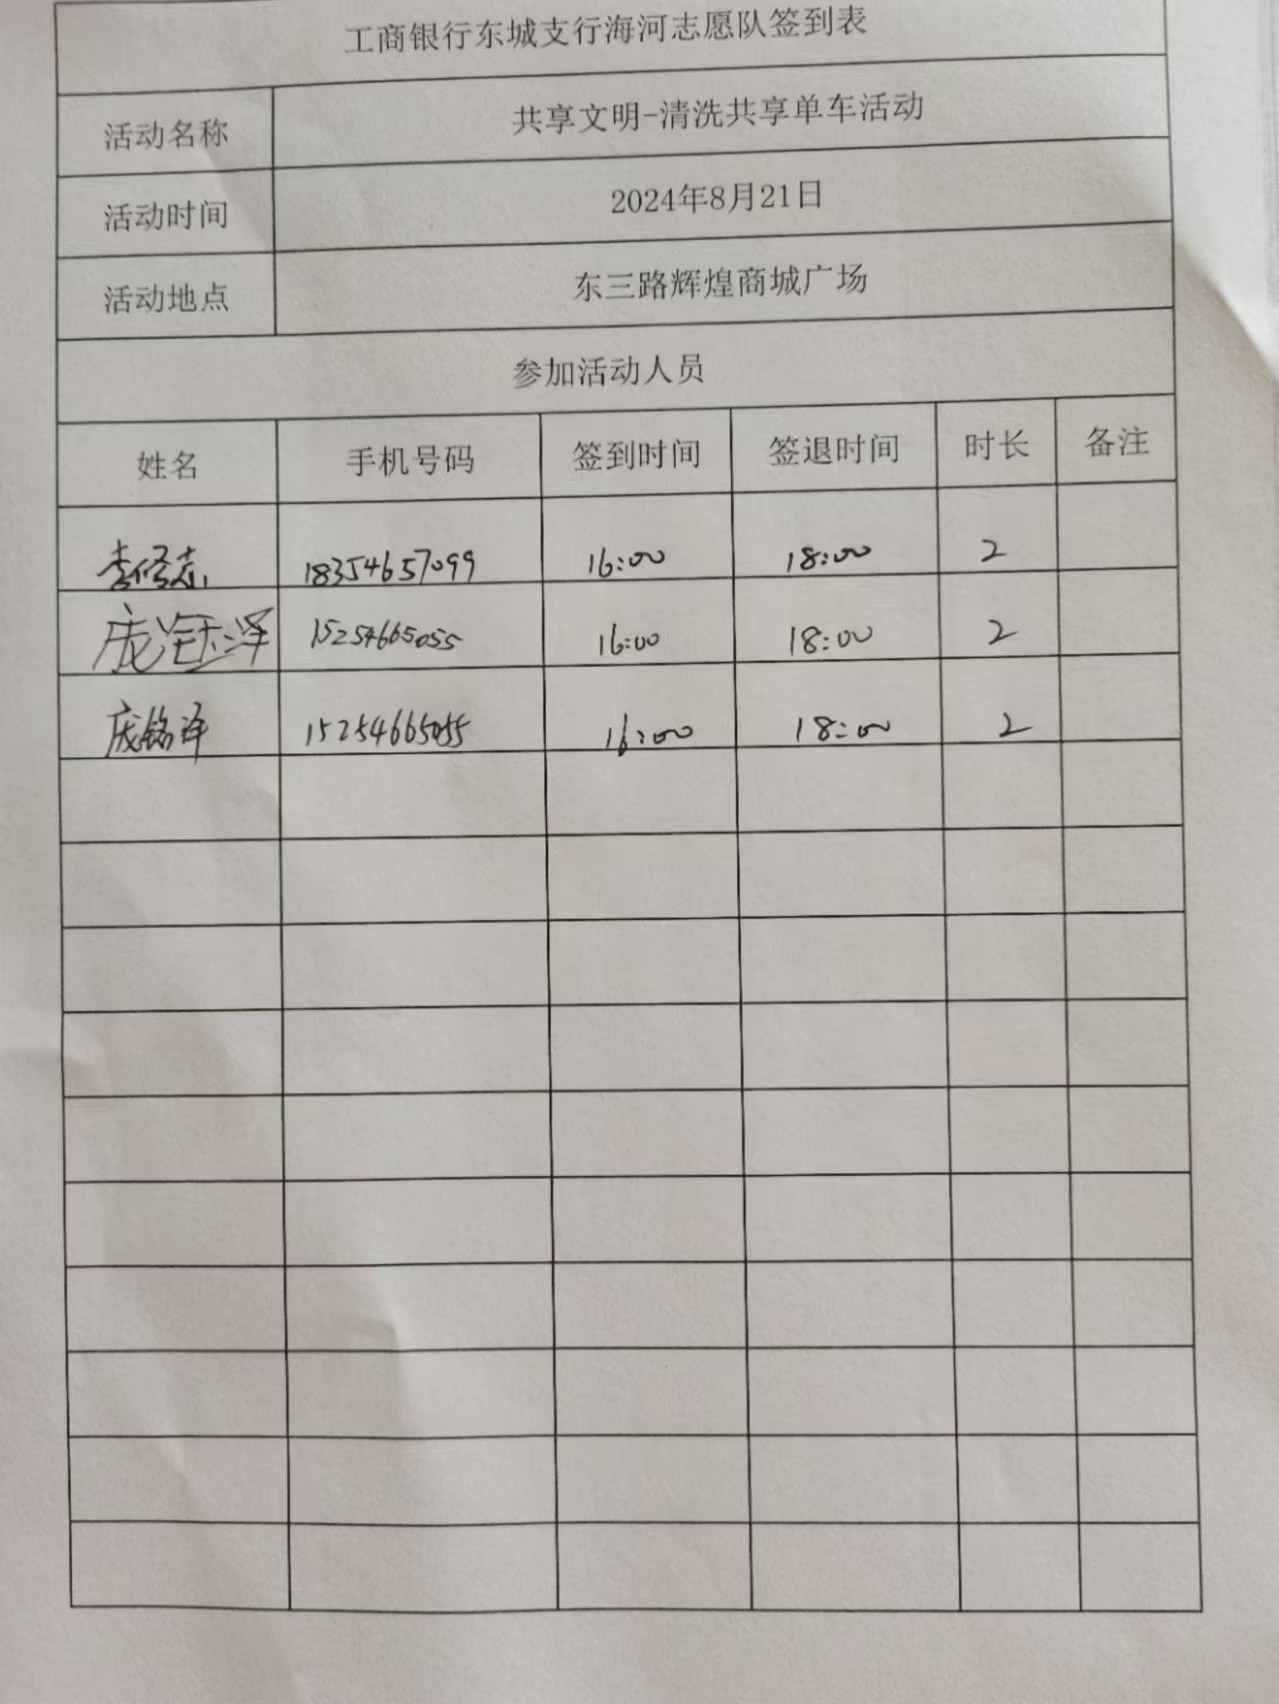 工商银行东城支行海河志愿队签到表
活动名称 共享文明-清洗共享单车活动
活动时间 2024年8月21日
活动地点 东三路辉煌商城广场
参加活动人员
姓名 手机号码 签到时间 签退时间 时长 备注
李修志 18354657099 16:00 18:00 2
庞钰泽 15254665055 16:00 18:00 2
庞铭泽 15254665055 16:00 18:00 2